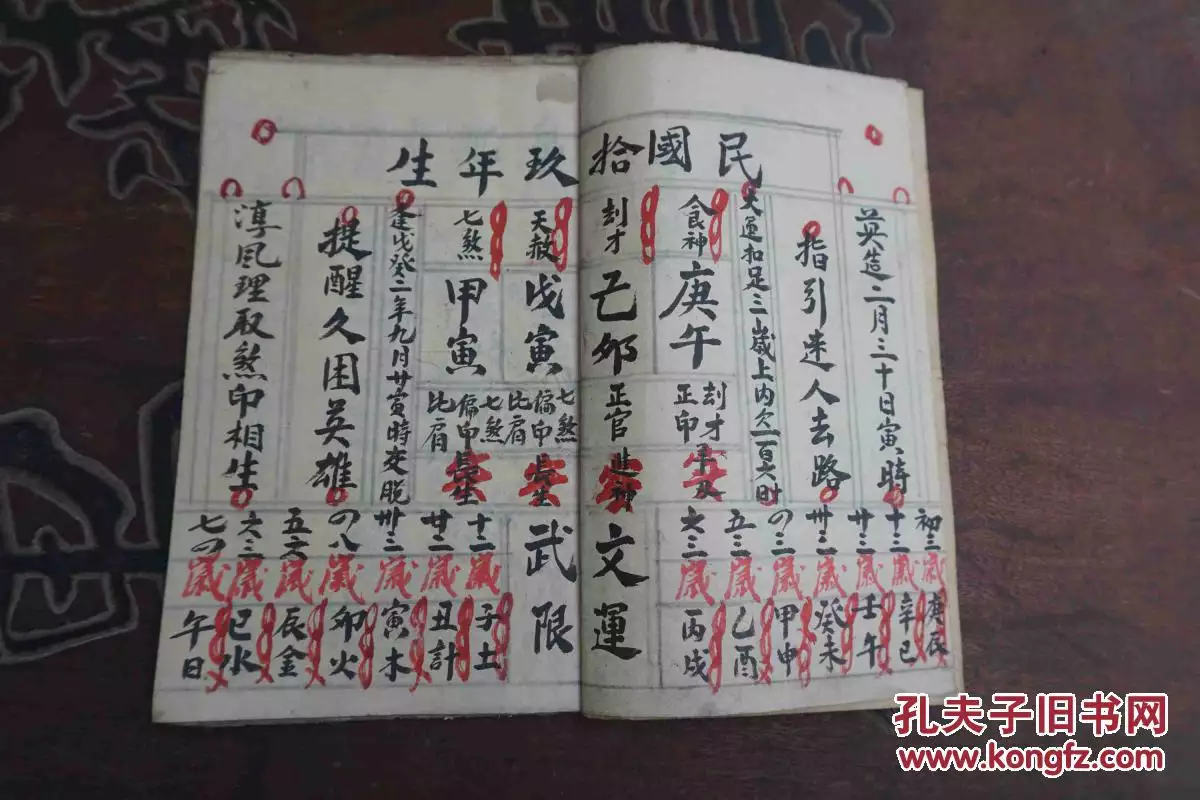 民國拾玖年生
英造二月三十日寅時
指引迷人去路
大運扣足三歲上內欠一百六时
食神
庚午
刦才
正印
刦才
己卯
正官
進神
天赦
戊寅
七煞
偏印
比肩
長生
七煞
甲寅
七煞
偏印
比肩
長生
逢戊癸二年九月廿寅時交脫
提醒久困英雄
淳風理取煞印相生
文運
初三歲庚辰
十三歲辛巳
廿三歲壬午
卅三歲癸未
四三歲甲申
五三歲乙酉
六三歲丙戌
武限
十二歲子土
廿二歲丑計
卅三歲寅木
四八歲卯火
五六歲辰金
六三歲巳水
七四歲午日
孔夫子旧书网
www.kongfz.com